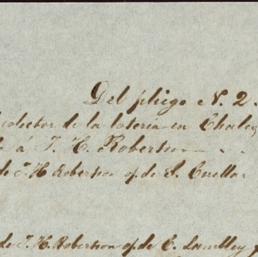 Del pliego N. 2.
colector de la loteria en Charles
a J. H. Robertson
de J. H. Robertson op. de S. Cuellar
de J. H. Robertson op. de C. Lumbley